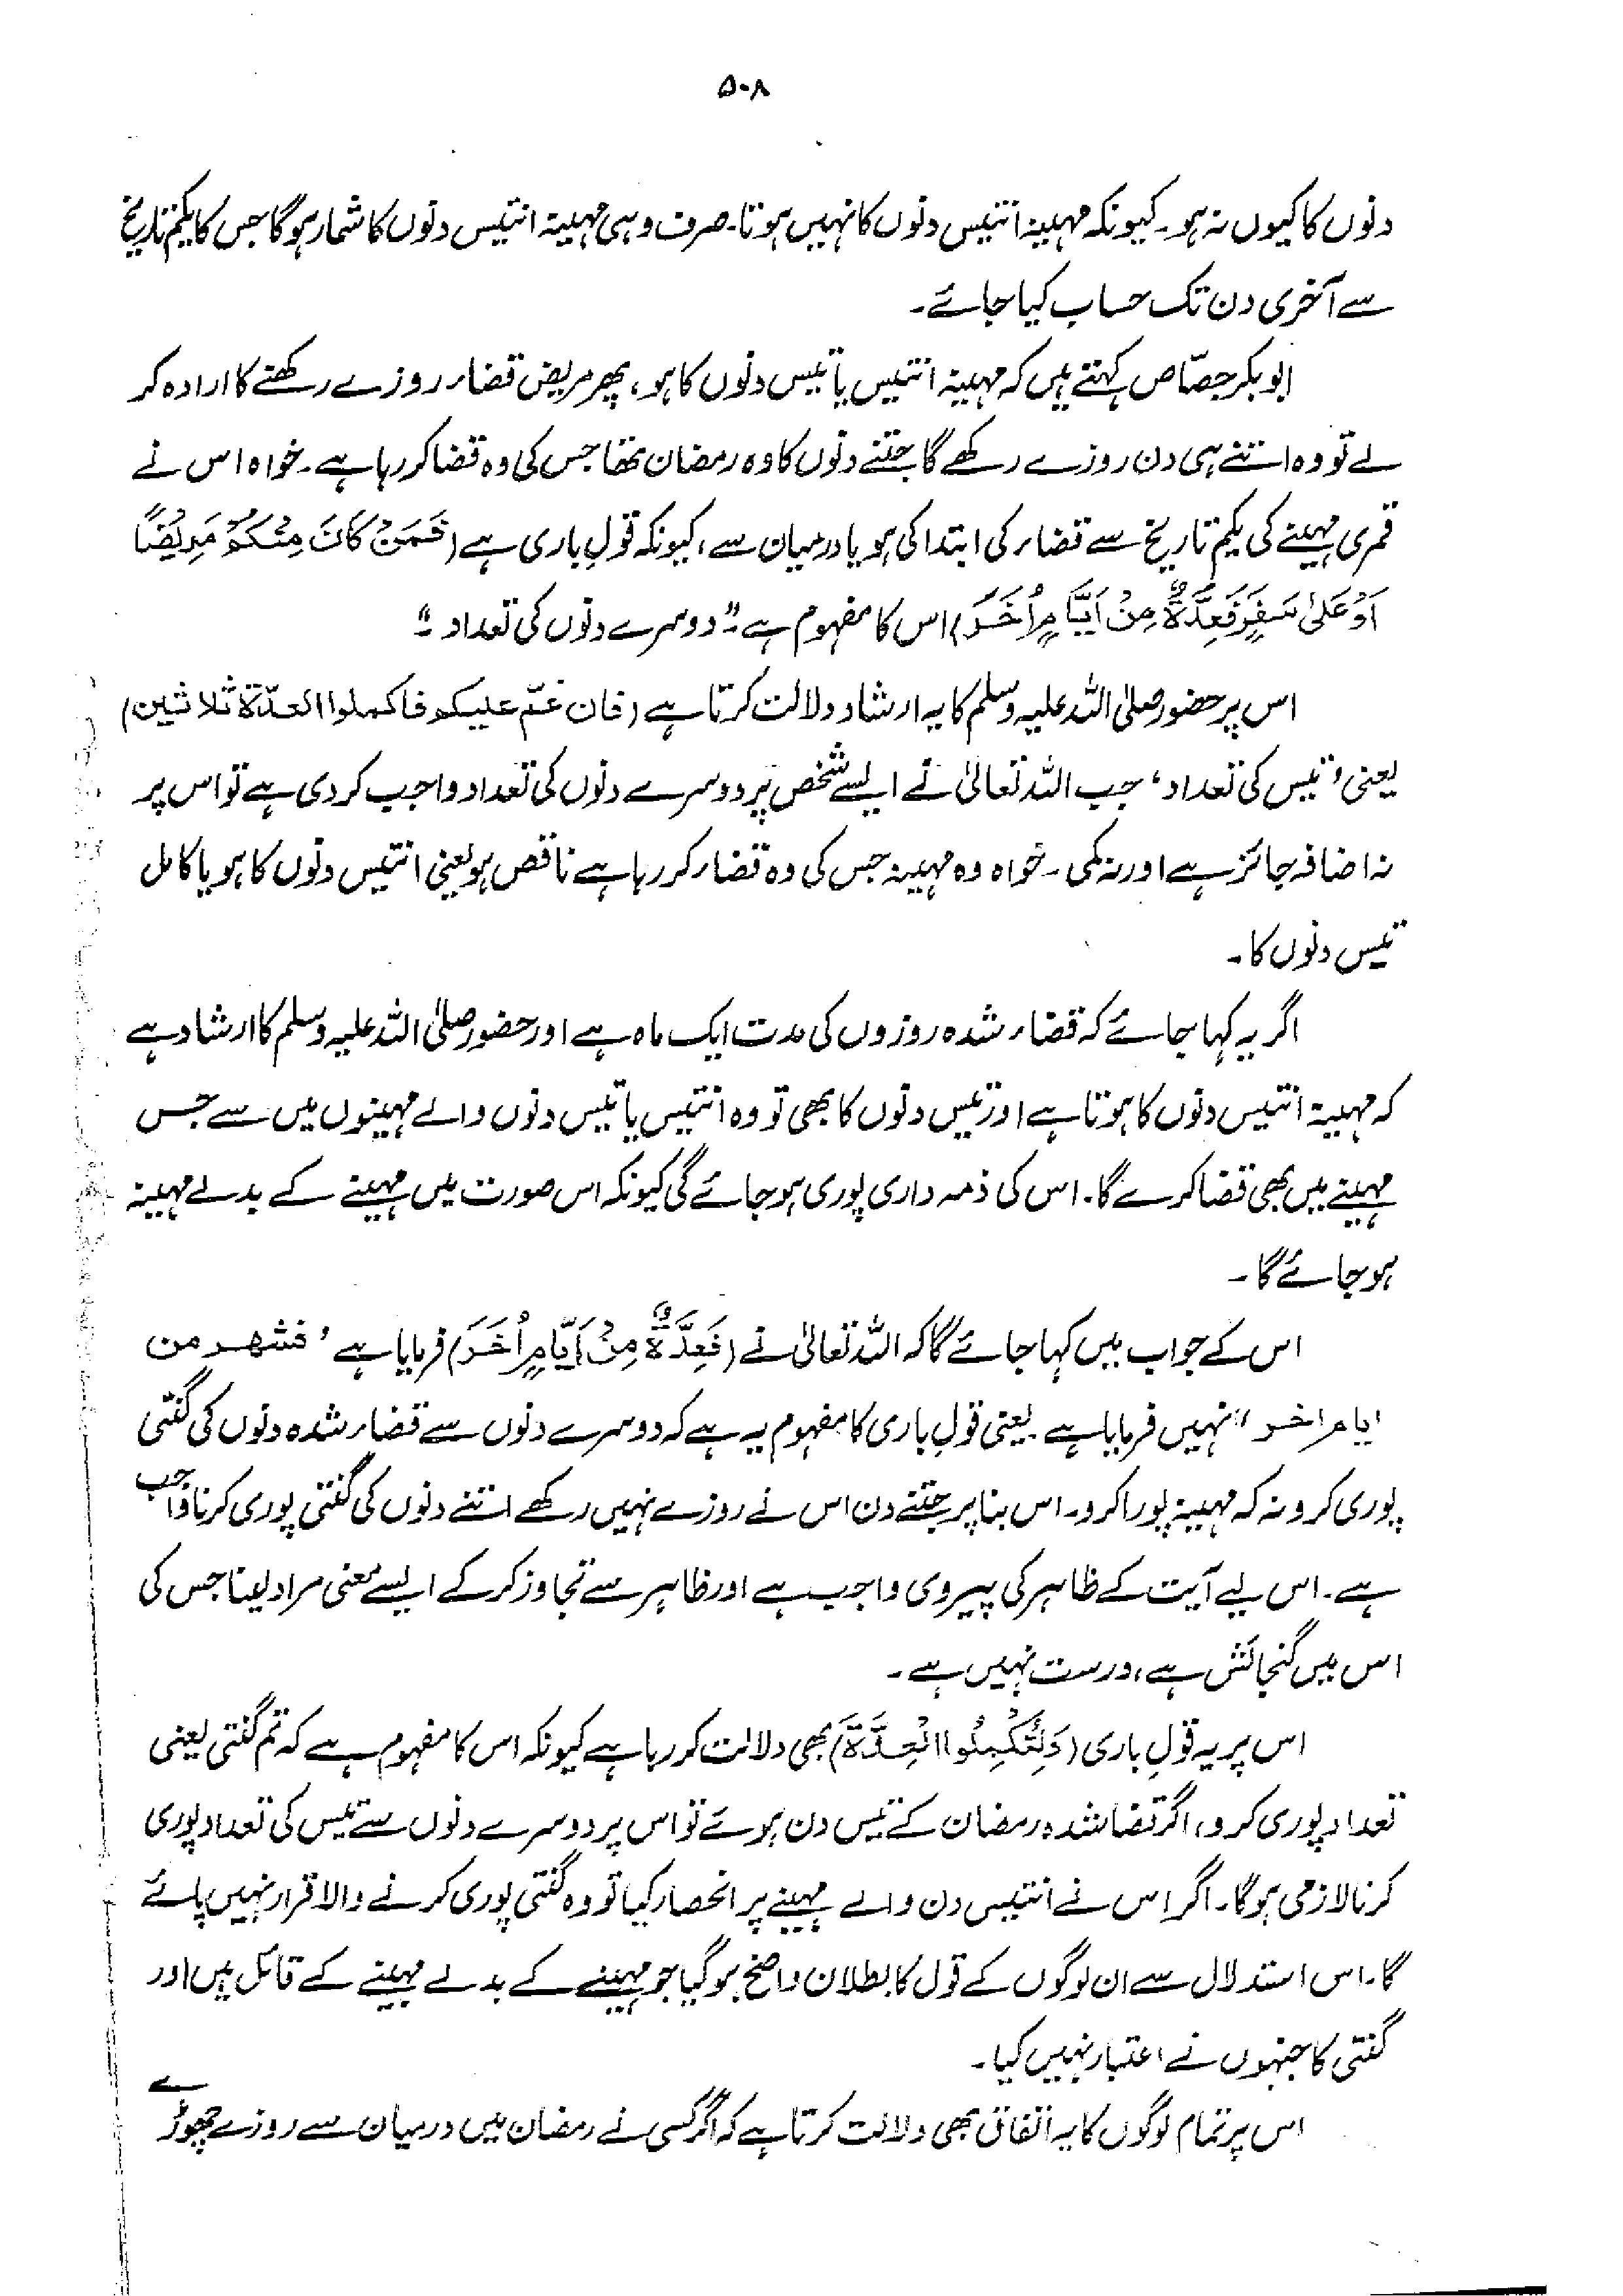 ۵۰۸
دنوں کا کیوں نہ ہو۔ کیونکہ مہینہ انتیس دنوں کا نہیں ہوتا۔ صرف وہی مہینہ انتیس دنوں کا شمار ہوگا جس کا یکم تاریخ
سے آخری دن تک حساب کیا جائے۔
ابوبکر جصّاص کہتے ہیں کہ مہینہ انتیس یا تیس دنوں کا ہو، پھر مریض قضاء روزے رکھنے کا ارادہ کر
لے تو وہ اتنے ہی دن روزے رکھے گا جتنے دنوں کا وہ رمضان تھا جس کی وہ قضا کر رہا ہے۔ خواہ اس نے
قمری مہینے کی یکم تاریخ سے قضاء کی ابتدا کی ہو یا درمیان سے، کیونکہ قولِ باری ہے (فَمَنْ كَانَ مِنْكُمْ مَرِيْضًا
اَوْ عَلٰى سَفَرٍ فَعِدَّةٌ مِنْ اَيَّامٍ اُخَرَ) اس کا مفہوم ہے۔" دوسرے دنوں کی تعداد۔"
اس پر حضور صلی اللہ علیہ وسلم کا یہ ارشاد دلالت کرتا ہے (فان غمّ عليكم فاكملوا العدّة ثلاثين)
یعنی 'تیس کی تعداد' جب اللہ تعالیٰ نے ایسے شخص پر دوسرے دنوں کی تعداد واجب کر دی ہے تو اس پر
نہ اضافہ جائز ہے اور نہ کمی۔ خواہ وہ مہینہ جس کی وہ قضاء کر رہا ہے ناقص ہو یعنی انتیس دنوں کا ہو یا کامل
تیس دنوں کا۔
اگر یہ کہا جائے کہ قضاء شدہ روزوں کی مدت ایک ماہ ہے اور حضور صلی اللہ علیہ وسلم کا ارشاد ہے
کہ مہینہ انتیس دنوں کا ہوتا ہے اور تیس دنوں کا بھی تو وہ انتیس یا تیس دنوں والے مہینوں میں سے جس
مہینے میں بھی قضا کرے گا۔ اس کی ذمہ داری پوری ہو جائے گی کیونکہ اس صورت میں مہینے کے بدلے مہینہ
ہو جائے گا۔
اس کے جواب میں کہا جائے گا کہ اللہ تعالیٰ نے (فَعِدَّةٌ مِنْ اَيَّامٍ اُخَرَ) فرمایا ہے ' فشهر من
ايام اخر" نہیں فرمایا ہے یعنی قولِ باری کا مفہوم یہ ہے کہ دوسرے دنوں سے قضاء شدہ دنوں کی گنتی
پوری کرو نہ کہ مہینہ پورا کرو۔ اس بنا پر جتنے دن اس نے روزے نہیں رکھے اتنے دنوں کی گنتی پوری کرنا واجب
ہے۔ اس لیے آیت کے ظاہر کی پیروی واجب ہے اور ظاہر سے تجاوز کر کے ایسے معنی مراد لینا جس کی
اس میں گنجائش ہے، درست نہیں ہے۔
اس پر یہ قولِ باری (وَلِتُكْمِلُوا الْعِدَّةَ) بھی دلالت کر رہا ہے کیونکہ اس کا مفہوم ہے کہ تم گنتی یعنی
تعداد پوری کرو، اگر قضا شدہ رمضان کے تیس دن ہوئے تو اس پر دوسرے دنوں سے تیس کی تعداد پوری
کرنا لازمی ہوگا۔ اگر اس نے انتیس دن والے مہینے پر انحصار کیا تو وہ گنتی پوری کرنے والا قرار نہیں پائے
گا۔ اس استدلال سے ان لوگوں کے قول کا بطلان واضح ہو گیا جو مہینے کے بدلے مہینے کے قائل ہیں اور
گنتی کا جنہوں نے اعتبار نہیں کیا۔
اس پر تمام لوگوں کا یہ اتفاق بھی دلالت کرتا ہے کہ اگر کسی نے رمضان میں درمیان سے روزے چھوڑے